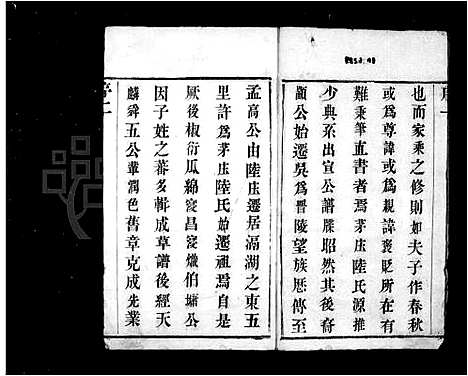 也而家乘之修則如夫子作春秋
或為尊諱或為親諱褒貶所在有
難秉筆直書者焉茅庄陸氏源推
少典系出宣公譜牒昭然其後裔
顗公始遷吳為晉陵望族歷傳至
孟高公由陸庄遷居滆湖之東五
里許為茅庄陸氏始遷祖焉自是
厥後椒衍瓜綿寖昌寖熾伯墉公
因子姓之蕃多輯成草譜後經天
麟舜五公輩潤色舊章克成先業
序二